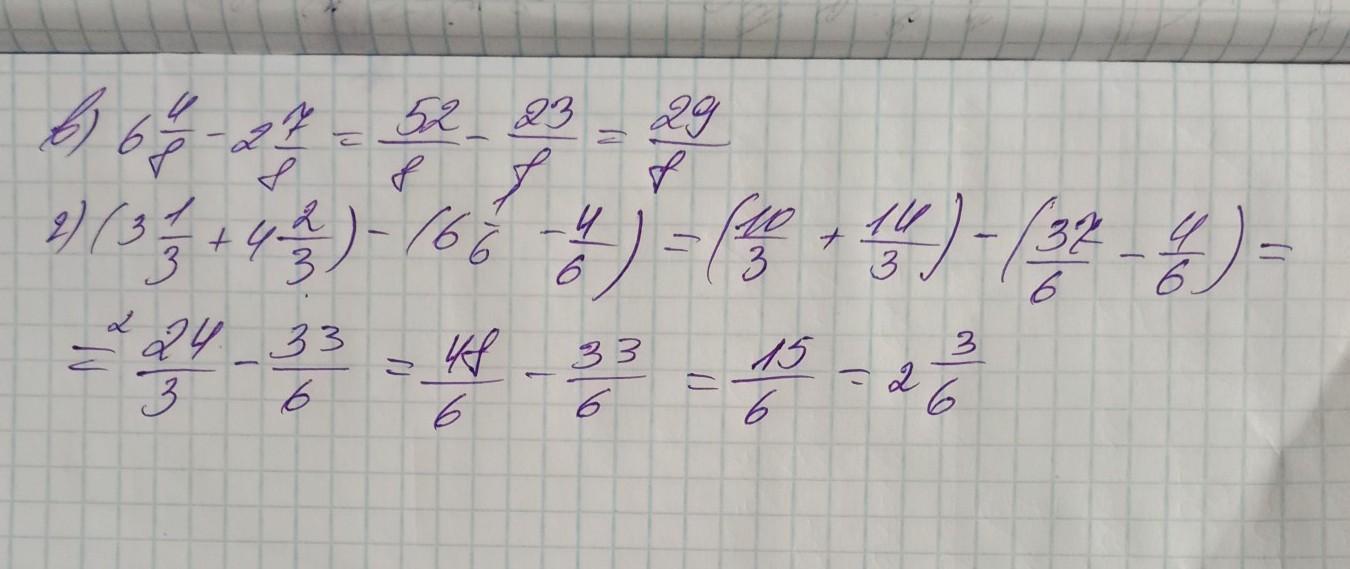 в) 6 4/8 - 2 7/8 = 52/8 - 23/8 = 29/8
г) (3 1/3 + 4 2/3) - (6 1/6 - 4/6) = (10/3 + 14/3) - (37/6 - 4/6) =
= ² 24/3 - 33/6 = 48/6 - 33/6 = 15/6 = 2 3/6